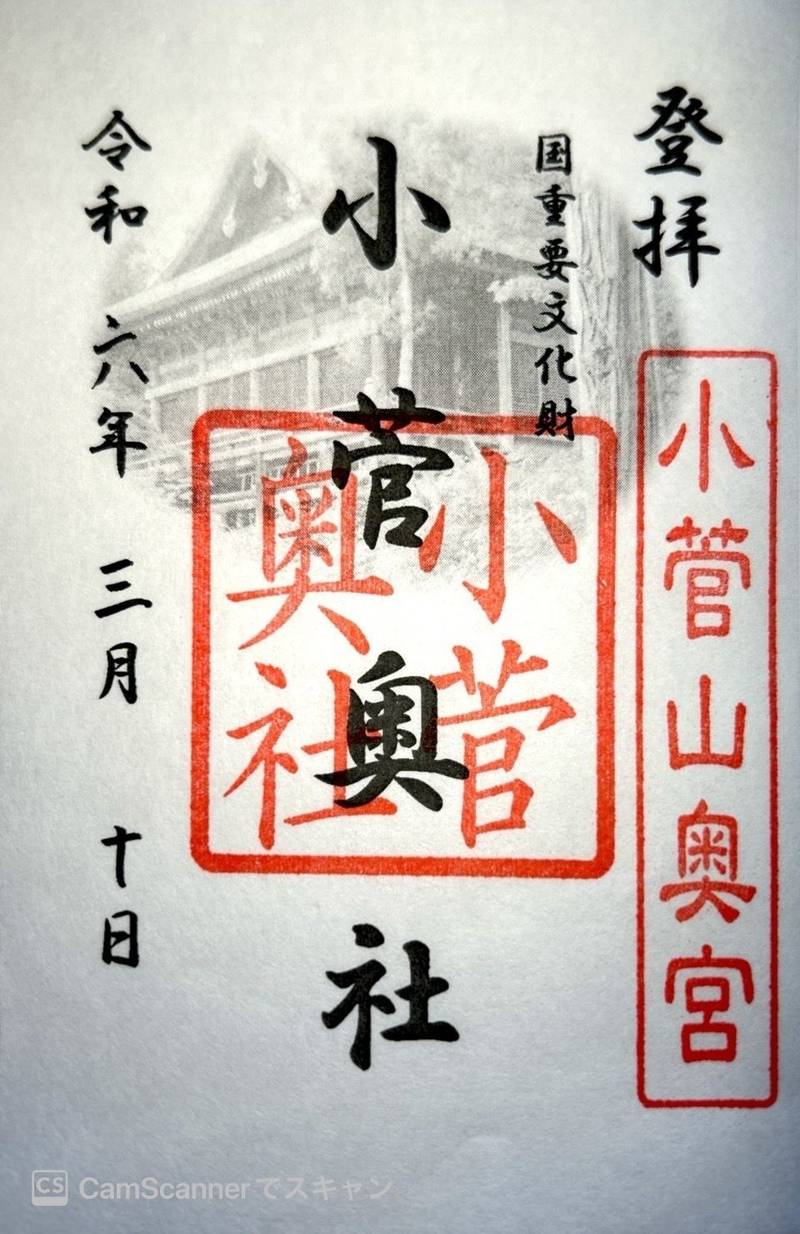 登拝
小菅山奥宮
国重要文化財
小菅奥社
小菅
奥社
令和六年三月十日
CS CamScannerでスキャン